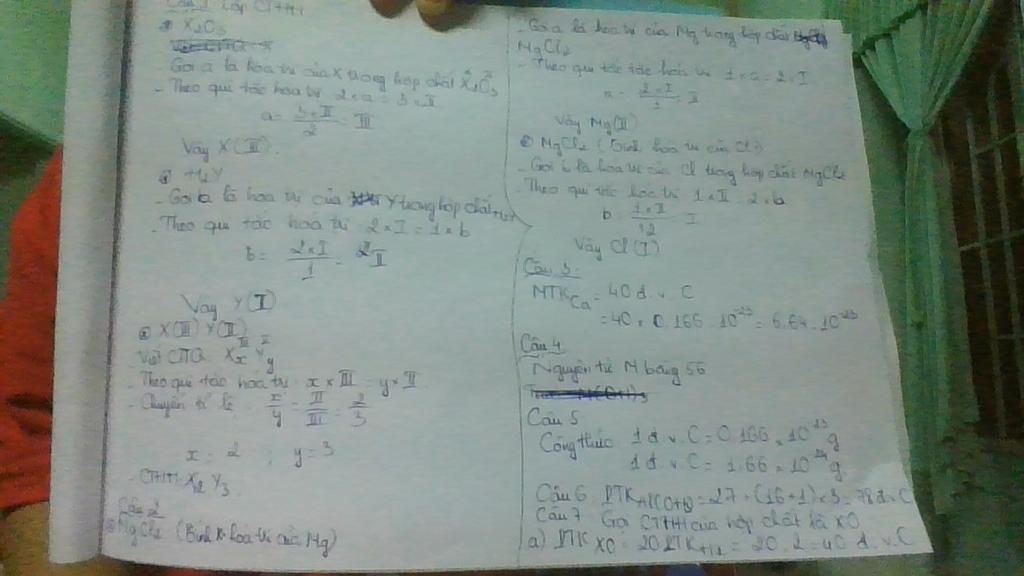 Câu 1 Lập CTHH
X2O3
Gọi a là hóa trị của X trong hợp chất X2O3
- Theo qui tắc hóa trị 2 x a = 3 x II
a = 3 x II / 2 = III
Vậy X (III).
H2Y
- Gọi b là hóa trị của Y trong hợp chất H2Y
- Theo qui tắc hóa trị 2 x I = 1 x b
b = 2 x I / 1 =
Vậy Y (I)
X (III) Y (II)
- Viết CTTQ XxYy
- Theo qui tắc hóa trị: x x III = y x II
- Chuyển tỉ lệ: x/y = II/III = 2/3
x = 2 ; y = 3
- CTHH X2Y3.
Câu 2
MgCl2 (Bình hóa trị của Mg)
- Gọi a là hóa trị của Mg trong hợp chất
MgCl2
- Theo qui tắc hóa trị 1 x a = 2 x I
a = 2 x I / 1 = II
Vậy Mg (II)
MgCl2 (Bình hóa trị của Cl)
- Gọi b là hóa trị của Cl trong hợp chất MgCl2
Theo qui tắc hóa trị 1 x II = 2 x b
b = = I
Vậy Cl (I)
Câu 3:
NTK Ca = 40 đ.v.C
= 40 x 0.166 . 10^-23 = 6.64 . 10^-23
Câu 4
Nguyên tử M bằng 56
Câu 5
Công thức 1 đ.v.C = 0.166 x 10^-23 g
1 đ.v.C = 1.66 x 10^-24 g
Câu 6 PTK Al(OH)3 = 27 + (16+1) x 3 = 78 đ.v.C
Câu 7 Gọi CTHH của hợp chất là XO
a) PTK XO = 20 PTK H2 = 20 . 2 = 40 đ.v.C